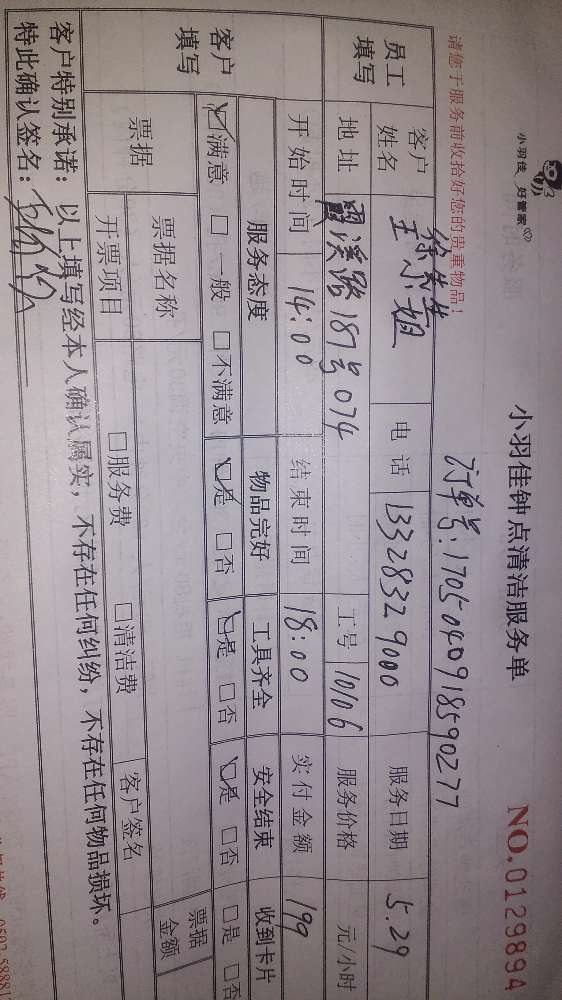 小羽佳 好管家
小羽佳钟点清洁服务单
NO.0129894
请您于服务前收拾好您的贵重物品！
订单号：1705040918590277
员工填写
客户姓名 徐先生 王小姐 电话 13328329000 服务日期 5.29
地址 霞溪路187号074 工号 10106 服务价格 元/小时
开始时间 14:00 结束时间 18:00 实付金额 199
客户填写
服务态度 物品完好 工具齐全 安全结束 收到卡片
☑满意 □一般 □不满意 ☑是 □否 ☑是 □否 ☑是 □否 □是 □否
票据 票据名称 票据金额
开票项目 □服务费 □清洁费 客户签名
客户特别承诺：以上填写经本人确认属实，不存在任何纠纷，不存在任何物品损坏。
特此确认签名：